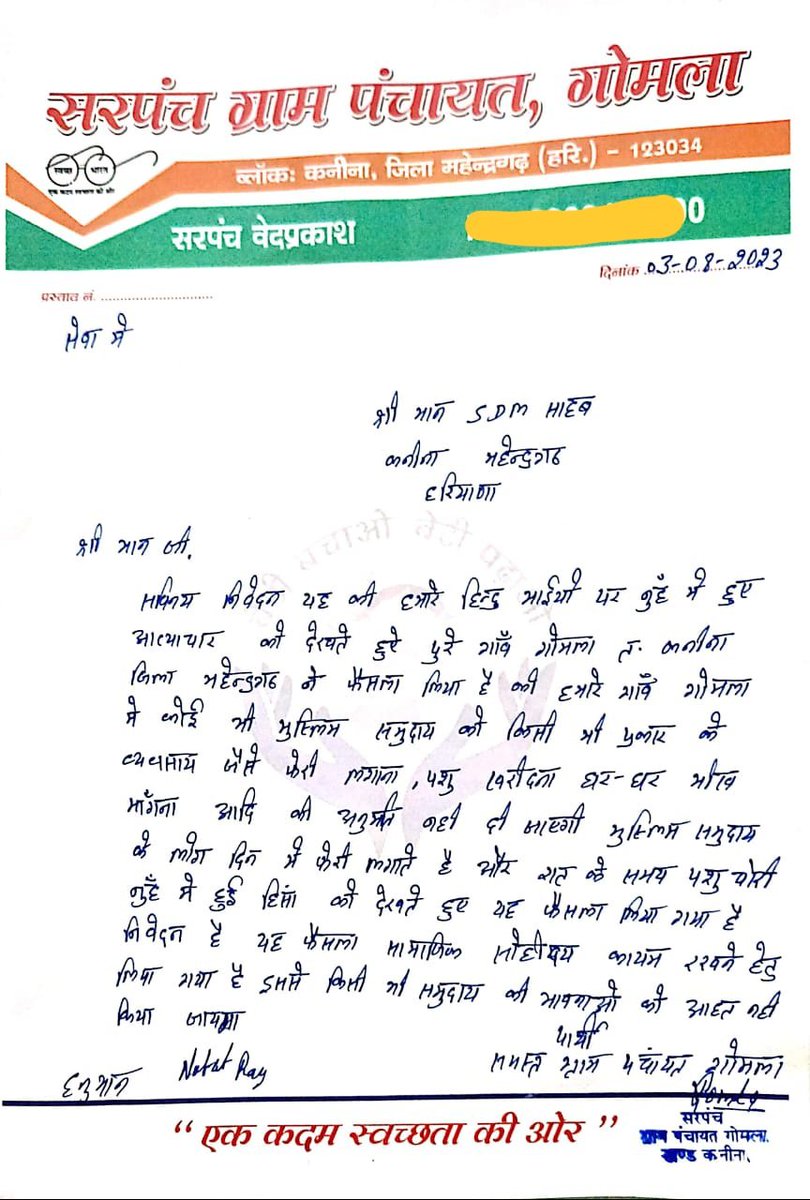 सरपंच ग्राम पंचायत, गोमला
स्वच्छ भारत
एक कदम स्वच्छता की ओर
ब्लॉक: कनीना, जिला महेन्द्रगढ़ (हरि.) - 123034
सरपंच वेदप्रकाश
दिनांक 03-08-2023
परस्ताव नं. ............................
सेवा मे
श्री मान SDM साहब
कनीना महेन्द्रगढ
हरियाणा
बचाओ बेटी पढ़ाओ
श्री मान जी.
सविनय निवेदन यह की हमारे हिन्दु भाईयो पर नुहँ मे हुए
अत्याचार को देखते हुऐ पुरे गाँव गोमला त. कनीना
जिला महेन्द्रगढ ने फैसला लिया है की हमारे गाँव गोमला
मे कोई भी मुस्लिम समुदाय को किसी भी प्रकार के
व्यवसाय जैसे फेरी लगाना, पशु खरीदना घर-घर भीख
माँगना आदि की अनुमति नही दी जाएगी मुस्लिम समुदाय
के लोग दिन मे फेरी लगाते है और रात के समय पशु चोरी
नुहँ मे हुई हिंसा को देखते हुए यह फैसला लिया गया है
निवेदन है यह फैसला सामाजिक कायम रखने हेतु
लिया गया है इससे किसी भी समुदाय की भावनाओ को आहत नही
किया जायगा
पार्थी
समस्त ग्राम पंचायत गोमला
हनुमान
सरपंच
ग्राम पंचायत गोमला
खण्ड कनीना.
“ एक कदम स्वच्छता की ओर ”